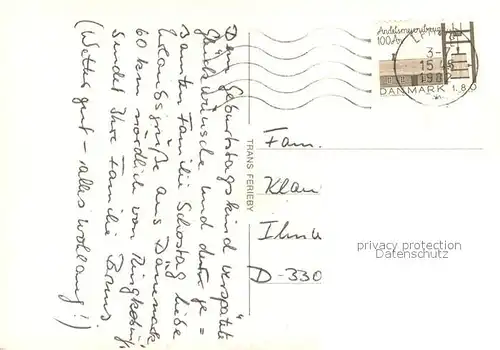 Dem "Geburtstagskind" verspätete
Glückwünsche und der ge=
samten Familie Schostag liebe
Urlaubsgrüße aus Dänemark,
60 km nördlich von Ringkøbing,
sendet Ihre Familie Bruns
(Wetter gut - alles wohlauf!)
TRANS FERIEBY
Andelsmejeribrug
100 År
3-7
15
1982
DANMARK 1.80
Fam.
Klau
D-330
privacy protection
Datenschutz